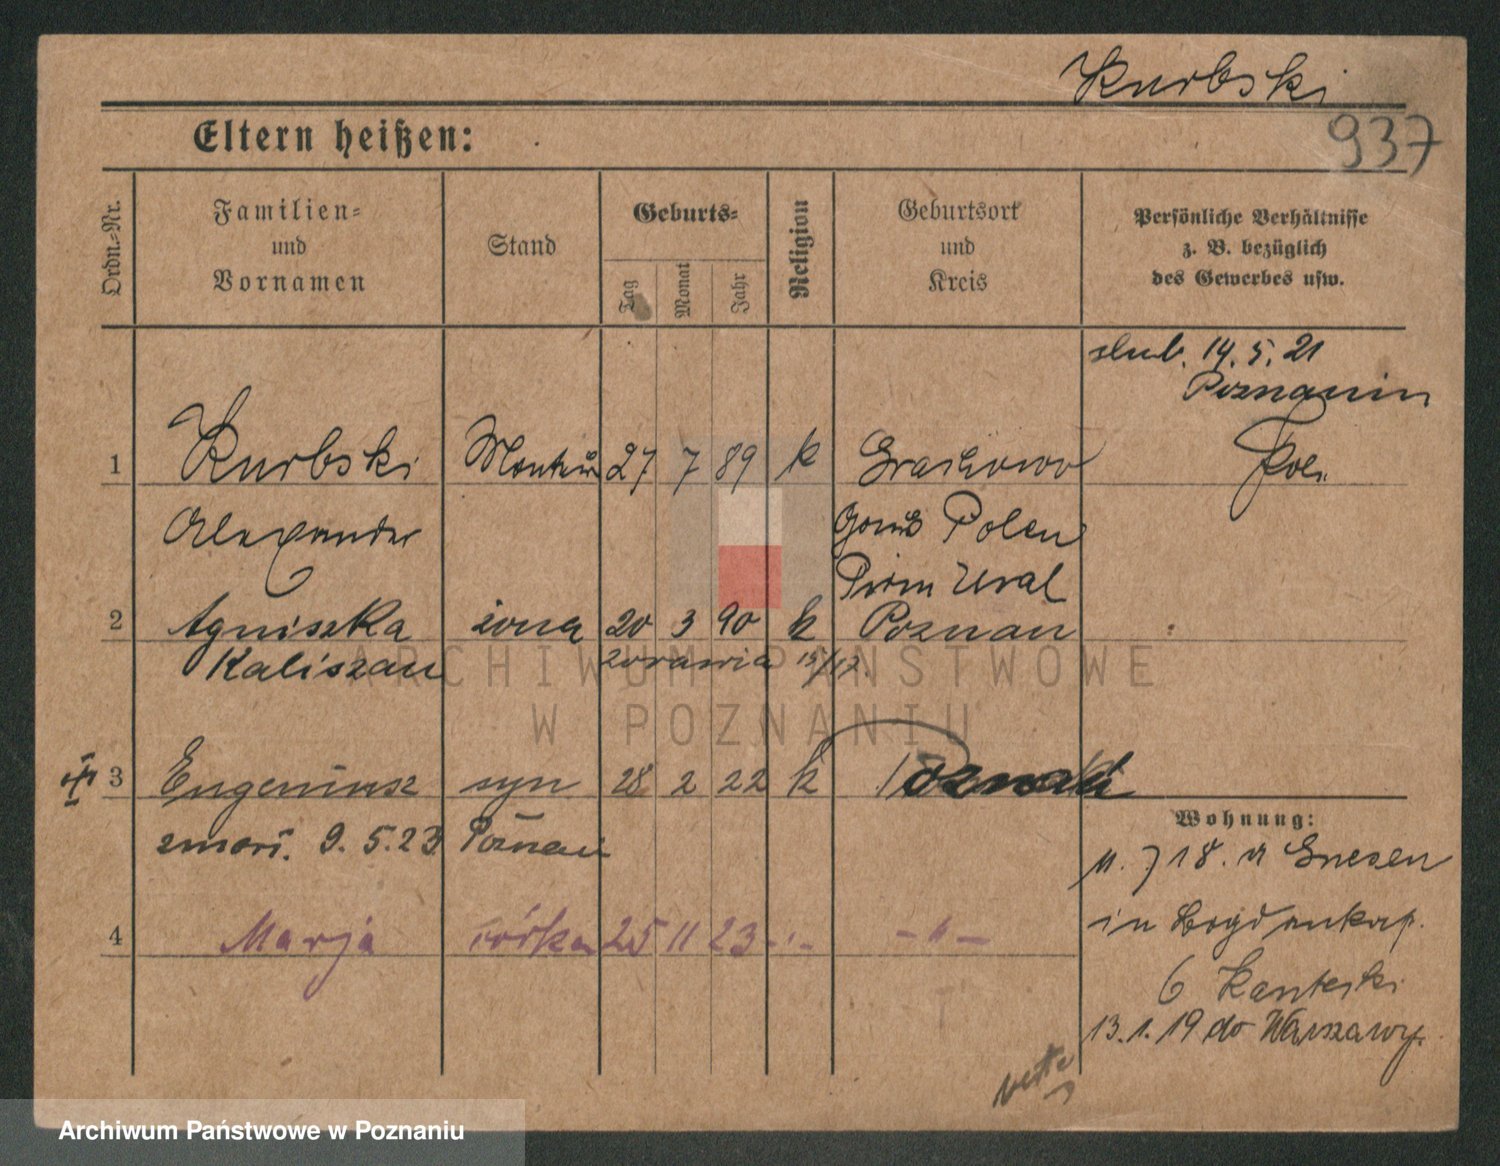 Kurbski
937
Eltern heißen:
Ordn.-Nr.
Familien- und Vornamen
Stand
Geburts-
Tag
Monat
Jahr
Religion
Geburtsort und Kreis
Persönliche Verhältnisse z. B. bezüglich des Gewerbes usw.
ślub. 14. 5. 21
Poznaniu
1 Kurbski Monteur 27 7 89 k
Pole
Alexander Polen
Ural
2 Agniszka żona 20 3 90 k Poznan
Kaliszan
3 Eugeniusz syn 28 2 22 k Poznań
Wohnung:
zmarł. 9. 5. 23 Poznań
18. Gnesen
4 Marja córka 25 11 23 -"- -"-
in
6 Kanteski
13. 1. 19 do Warszawy.
verte
ARCHIWUM PAŃSTWOWE
W POZNANIU
Archiwum Państwowe w Poznaniu